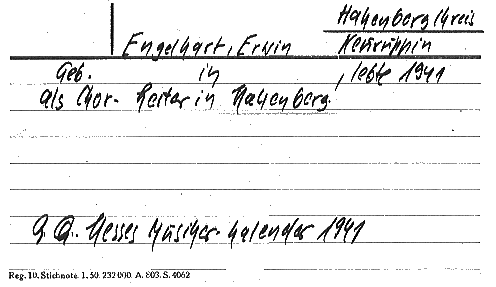 Hakenberg Kreis
Engelhart, Erwin Neuruppin
Geb. in , lebte 1941
als Chor-Leiter in Hakenberg.
Q. Hesses Musiker-Kalender 1941
Reg. 10. Stichnote. 1. 50. 232000. A. 803. S. 4062